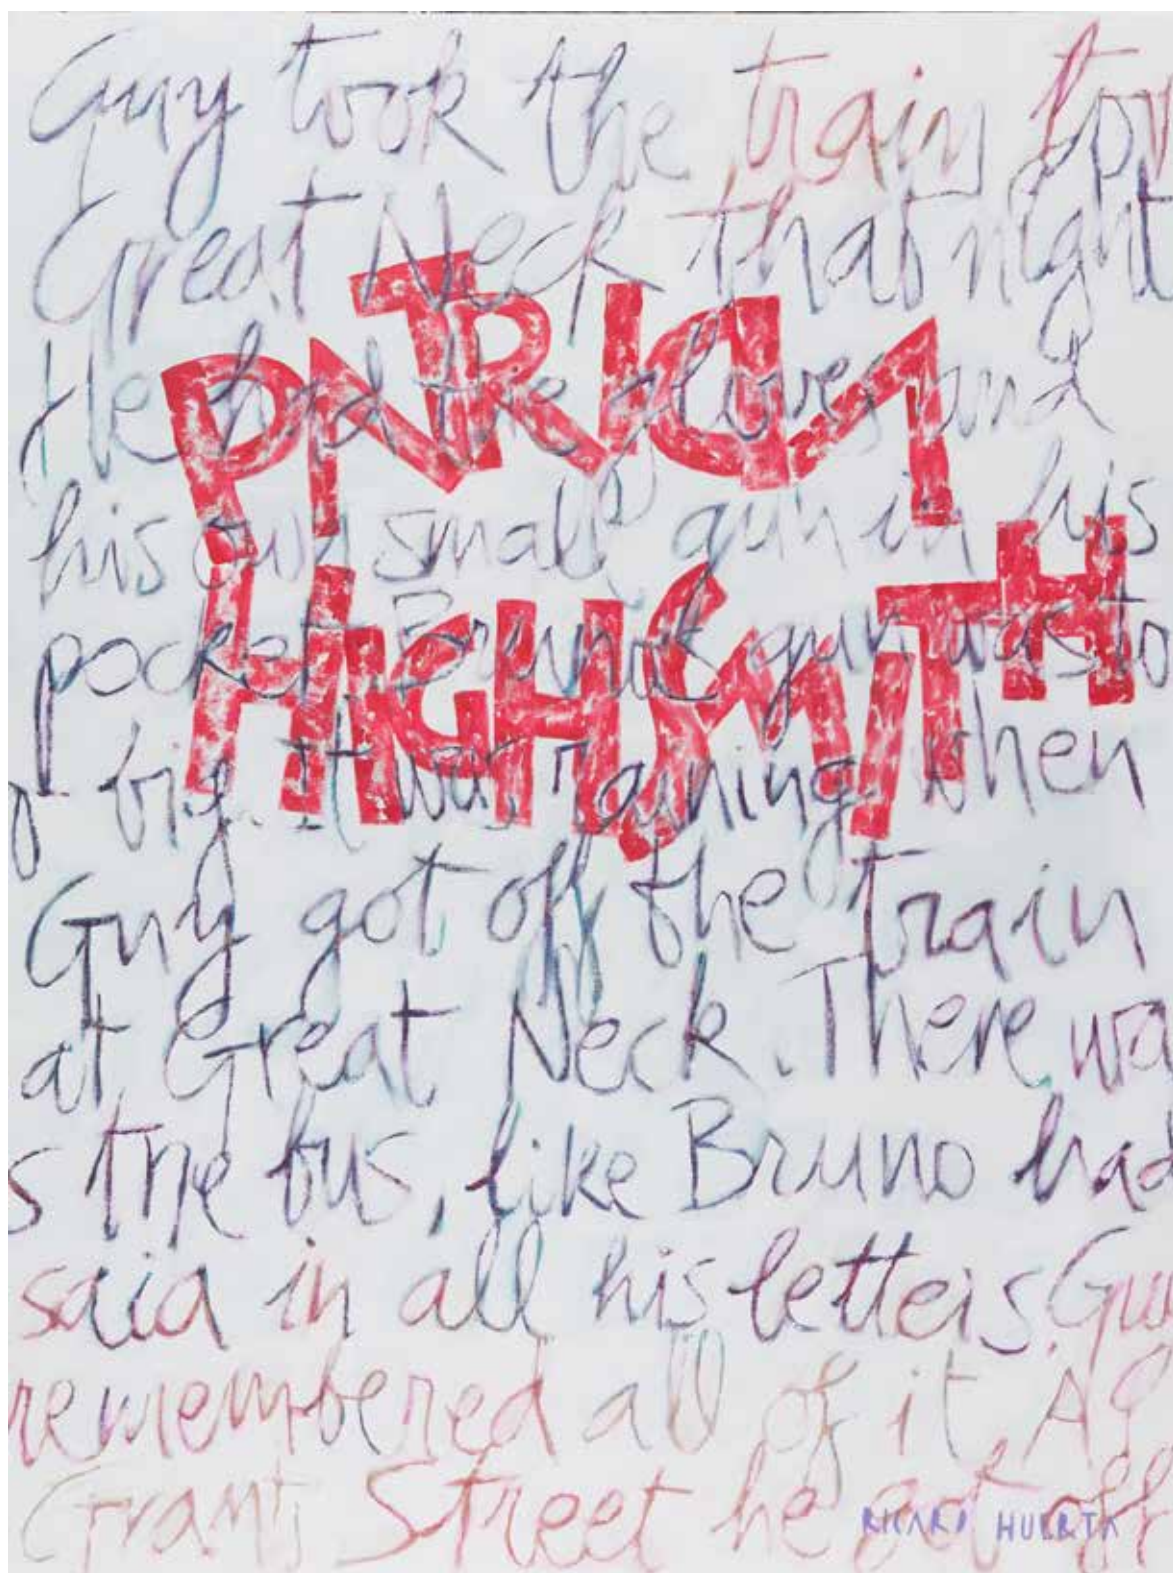 Guy took the train for
Great Neck that night
PATRICIA
He had the gloves and
his own small gun in his
HIGHSMITH
pocket. Bruno's gun was to
o big. It was raining when
Guy got off the train
at Great Neck. There wa
s the bus, like Bruno had
said in all his letters. Guy
remembered all of it. At
Grant Street he got off
RICARD HUERTA